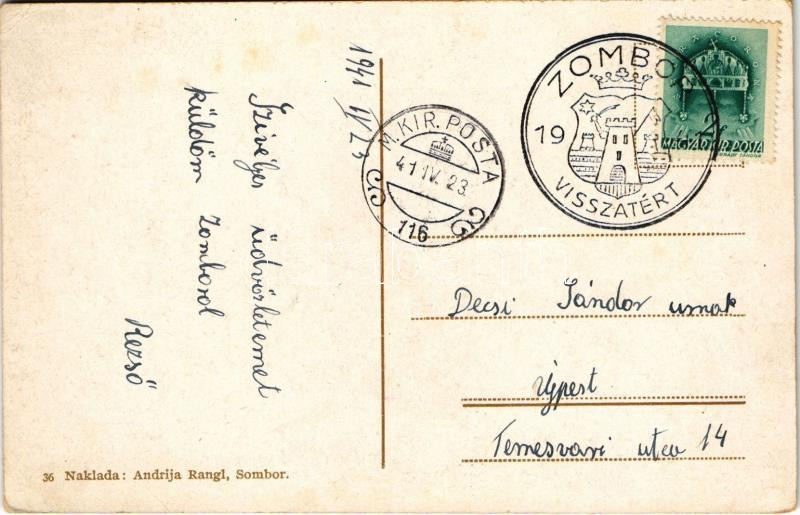 1941 IV 23
Szívélyes üdvözletemet
küldöm Zomborol
Rezső
M. KIR. POSTA
41 IV. 23.
116
ZOMBOR
19
VISSZATÉRT
2
MAGYAR KIR. POSTA
Decsi Sándor urnak
Újpest
Temesvari utca 14
36 Naklada: Andrija Rangl, Sombor.